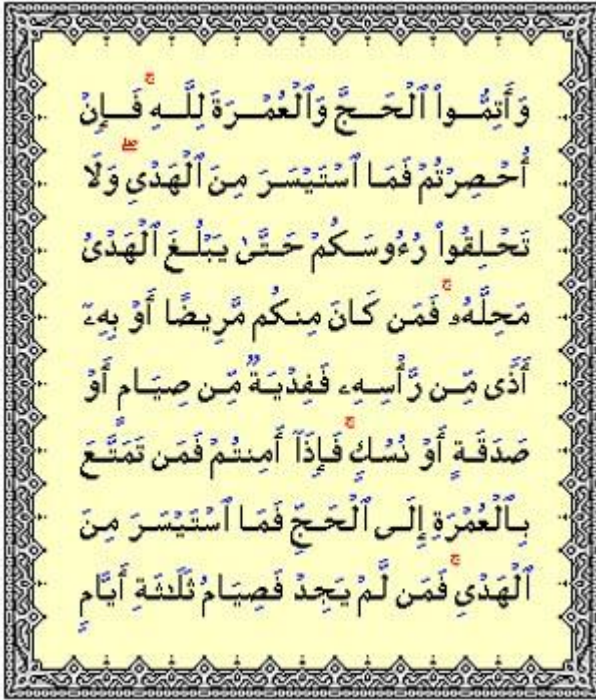 وَأَتِمُّواْ ٱلْحَجَّ وَٱلْعُمْرَةَ لِلَّهِ ۚ فَإِنْ
أُحْصِرْتُمْ فَمَا ٱسْتَيْسَرَ مِنَ ٱلْهَدْىِ ۖ وَلَا
تَحْلِقُواْ رُءُوسَكُمْ حَتَّىٰ يَبْلُغَ ٱلْهَدْىُ
مَحِلَّهُۥ ۚ فَمَن كَانَ مِنكُم مَّرِيضًا أَوْ بِهِۦٓ
أَذًى مِّن رَّأْسِهِۦ فَفِدْيَةٌ مِّن صِيَامٍ أَوْ
صَدَقَةٍ أَوْ نُسُكٍ ۚ فَإِذَآ أَمِنتُمْ فَمَن تَمَتَّعَ
بِٱلْعُمْرَةِ إِلَى ٱلْحَجِّ فَمَا ٱسْتَيْسَرَ مِنَ
ٱلْهَدْىِ ۚ فَمَن لَّمْ يَجِدْ فَصِيَامُ ثَلَٰثَةِ أَيَّامٍ